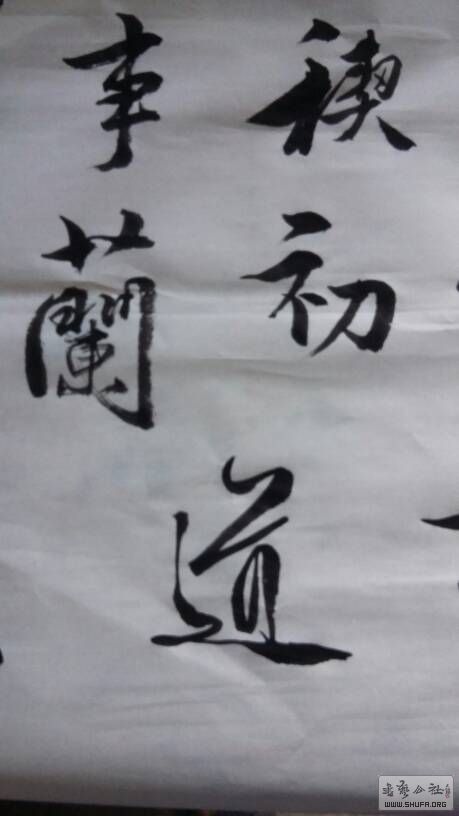 禊初
事蘭
道
書藝公社
WWW.SHUFA.ORG